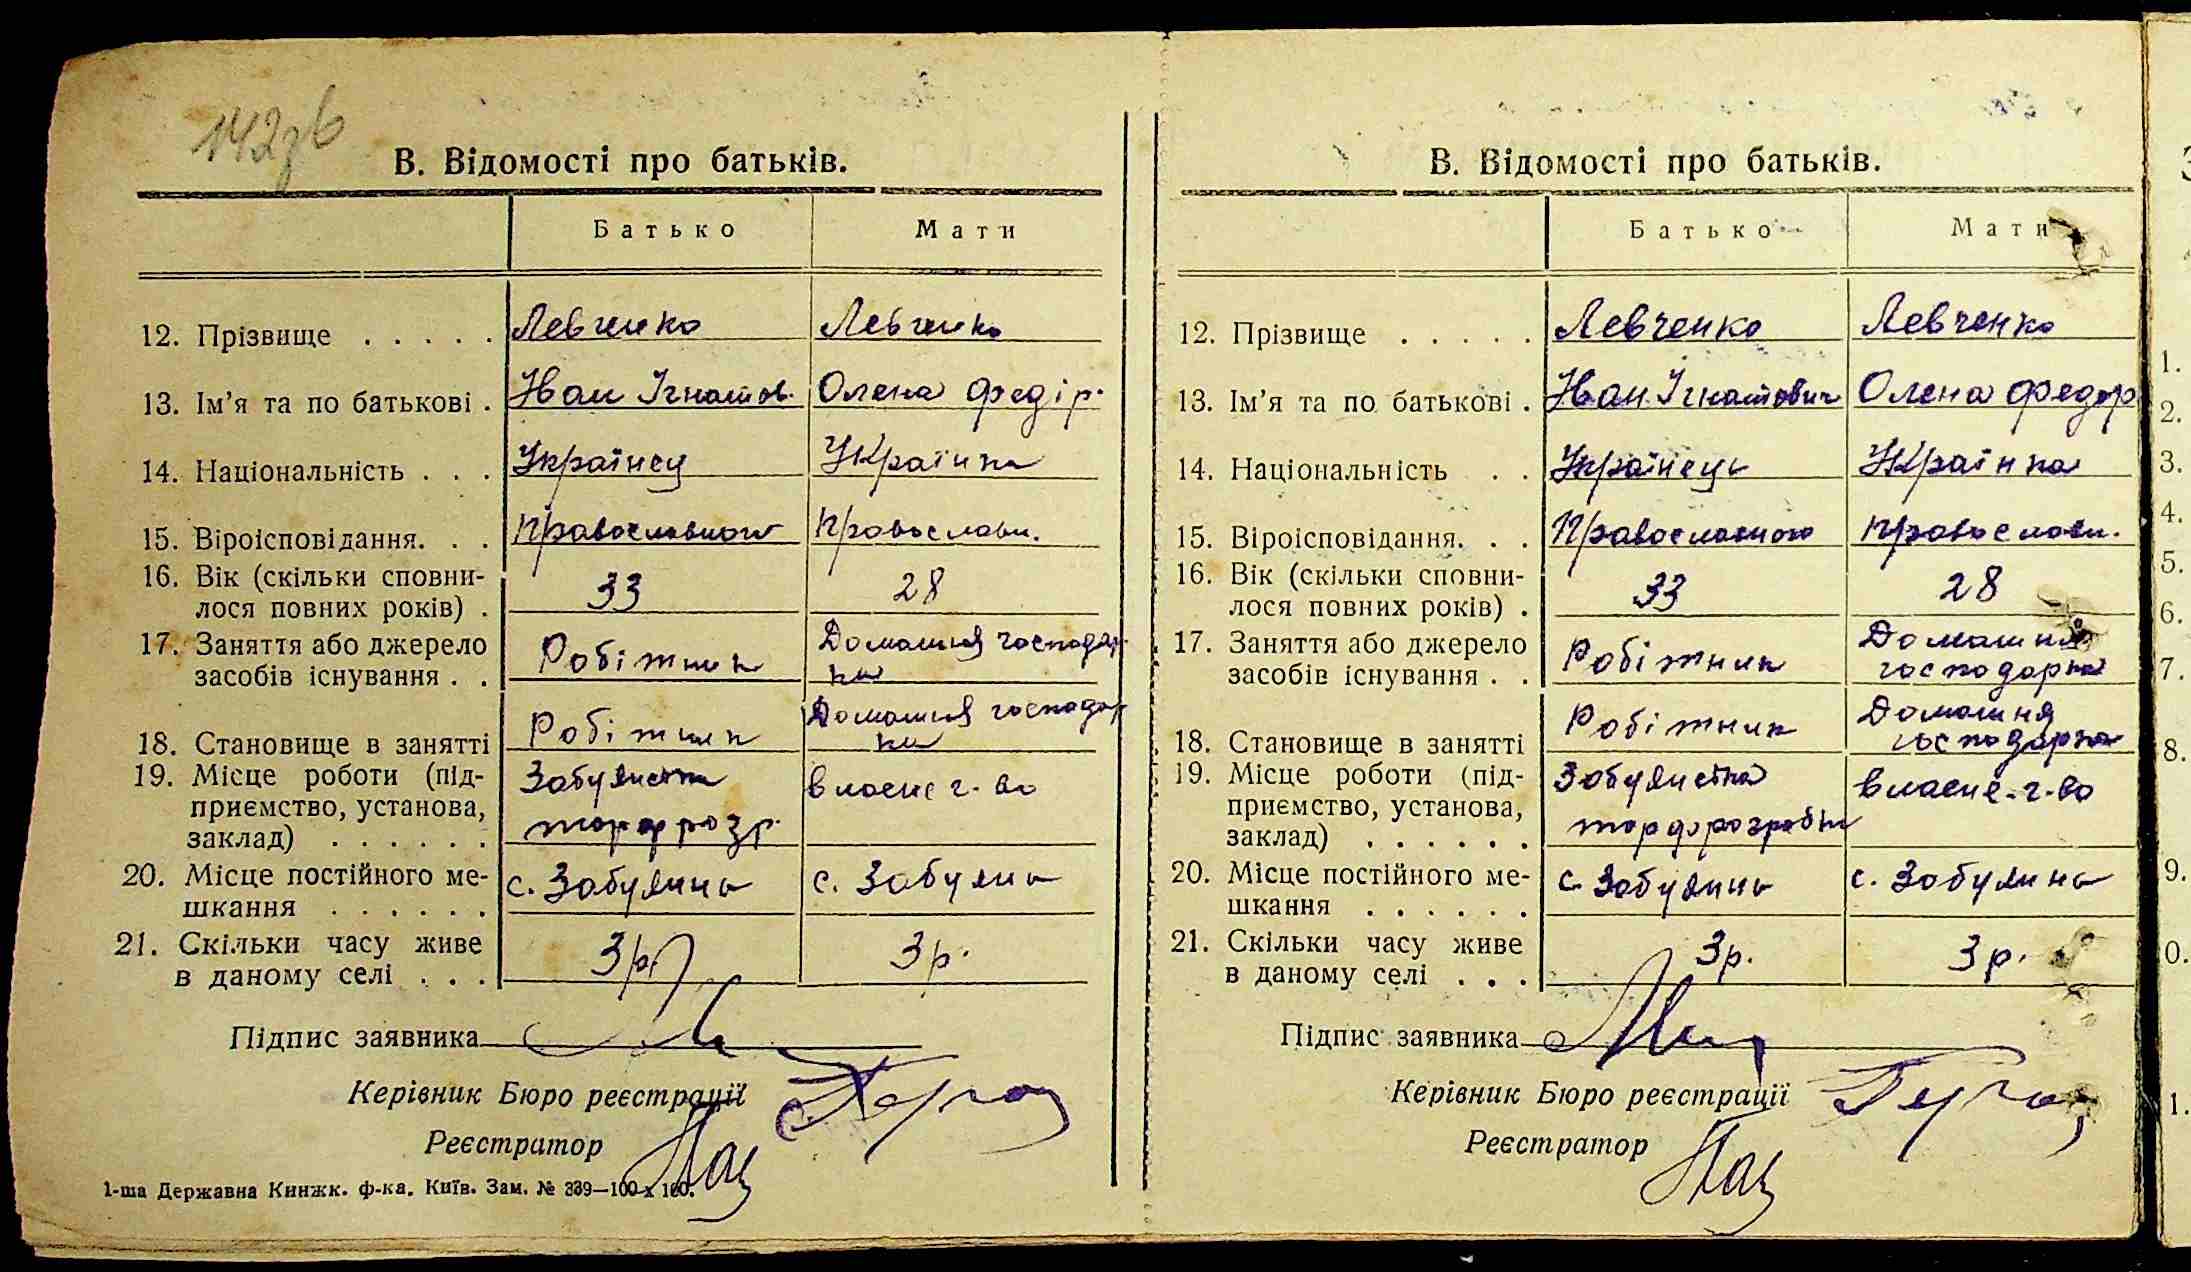 142зв
В. Відомості про батьків.
Батько Мати
12. Прізвище . . . . . Левченко Левченко
13. Ім'я та по батькові . Іван Ігнатов. Олена Федір.
14. Національність . . . Українец Українка
15. Віроісповідання. . . Православного Православн.
16. Вік (скільки сповни-
лося повних років) . 33 28
17. Заняття або джерело
засобів існування . . Робітник Домашня господар
ка
18. Становище в занятті Робітник Домашня господар
ка
19. Місце роботи (під-
приємство, установа,
заклад) . . . . . . Забуянська торфрозр. власне г-во
20. Місце постійного ме-
шкання . . . . . . с. Забуяння с. Забуянь
21. Скільки часу живе
в даному селі . . . 3 р. 3 р.
Підпис заявника
Керівник Бюро реєстрації
Реєстратор
1-ша Державна Книжк. ф-ка. Київ. Зам. № 339—100 х 100.
В. Відомості про батьків.
Батько Мати
12. Прізвище . . . . . Левченко Левченко
13. Ім'я та по батькові . Іван Ігнатович Олена Федор
14. Національність . . Українець Українка
15. Віроісповідання. . . Православного Православн.
16. Вік (скільки сповни-
лося повних років) . 33 28
17. Заняття або джерело
засобів існування . . Робітник Домашня
господарка
18. Становище в занятті Робітник Домашня
господарка
19. Місце роботи (під-
приємство, установа,
заклад) . . . . . . власне-г-во
20. Місце постійного ме-
шкання . . . . . . с. Забуянь с. Забуянь
21. Скільки часу живе
в даному селі . . . 3 р. 3 р.
Підпис заявника
Керівник Бюро реєстрації
Реєстратор
1.
2.
3.
4.
5.
6.
7.
8.
9.
0.
1.